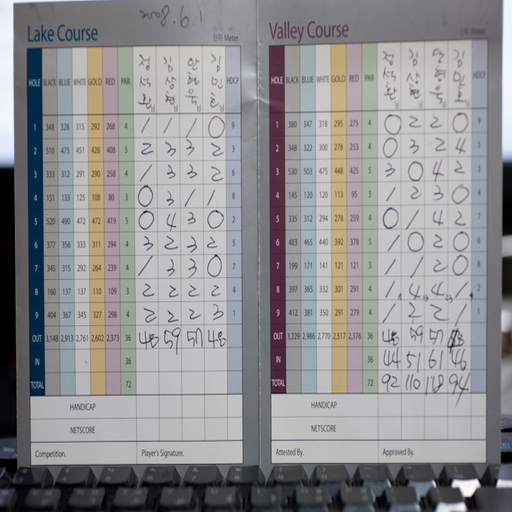 2008.6.1
Lake Course
단위 Meter
HOLE BLACK BLUE WHITE GOLD RED PAR HDCP
1 348 328 315 292 268 4 / / / 0 9
2 510 475 451 428 408 5 2 3 3 2 3
3 333 312 291 290 258 4 / 3 3 2 6
4 151 133 125 108 80 3 0 3 / / 8
5 520 490 472 472 419 5 0 4 3 0 2
6 377 356 333 311 294 4 3 2 3 2 5
7 345 315 292 264 239 4 / 3 3 0 7
8 160 137 137 110 109 3 2 2 2 2 4
9 404 367 345 327 298 4 2 2 2 3 1
OUT 3,148 2,913 2,761 2,602 2,373 36 48 59 57 48
IN 36
TOTAL 72
HANDICAP
NETSCORE
Competition. Player's Signature.
Valley Course
단위 Meter
HOLE BLACK BLUE WHITE GOLD RED PAR HDCP
1 380 347 318 295 275 4 0 2 2 0 9
2 348 322 300 278 253 4 0 3 2 4 5
3 530 503 475 448 425 5 3 0 4 2 3
4 145 120 120 113 95 3 / 2 3 0
5 335 312 294 278 259 4 0 / 4 2 7
6 483 465 440 392 378 5 / 0 2 0 6
7 199 171 141 121 121 3 / / 2 0 8
8 397 365 332 301 291 4 / 4 4 / 2
9 412 381 350 291 279 4 / 2 2 / 1
OUT 3,229 2,986 2,770 2,517 2,376 36 48 59 57
IN 36 44 51 61 46
TOTAL 72 92 110 118 94
HANDICAP
NETSCORE
Attested By. Approved By.